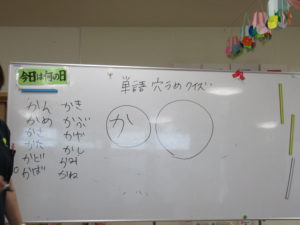 今日は何の日
単語 穴うめ クイズ
か
かん かき
かめ かぶ
かさ かげ
かた かし
かど かみ
かば かね